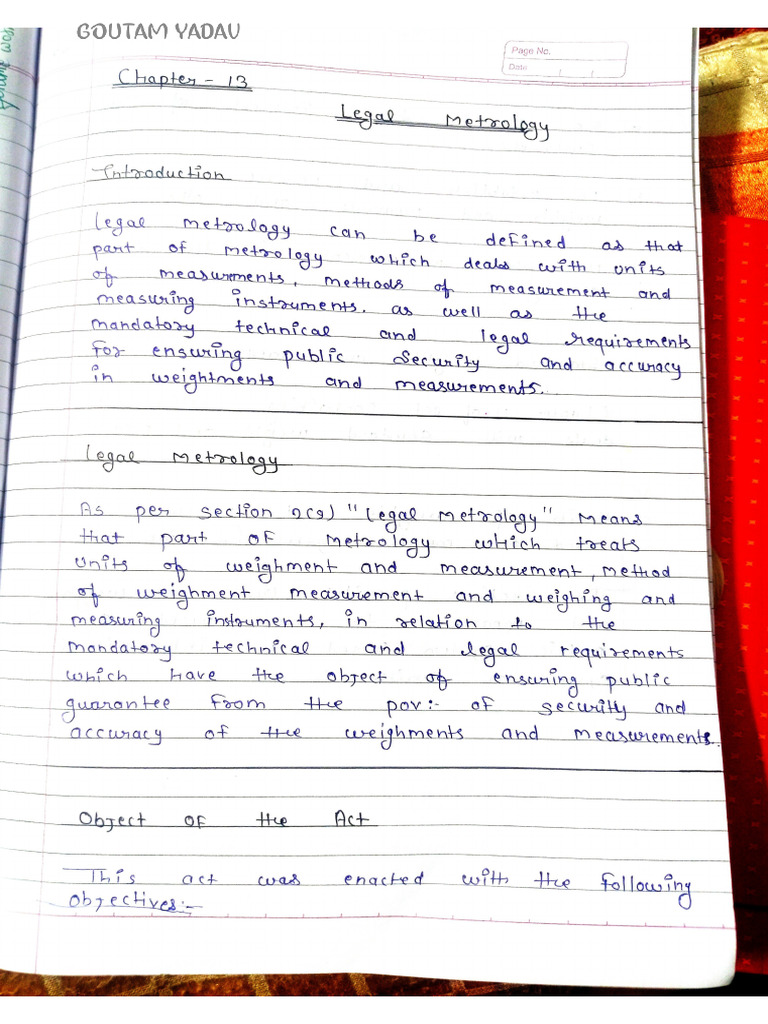 GOUTAM YADAV
Page No.
Date
Chapter - 13
Legal Metrology
Introduction
Legal metrology can be defined as that
part of metrology which deals with units
of measurements, methods of measurement and
measuring instruments. as well as the
mandatory technical and legal requirements
for ensuring public security and accuracy
in weightments and measurements.
Legal metrology
As per section 2(g) "legal metrology" means
that part of metrology which treats
units of weighment and measurement, method
of weighment measurement and weighing and
measuring instruments, in relation to the
mandatory technical and legal requirements
which have the object of ensuring public
guarantee from the pov:- of security and
accuracy of the weighments and measurements.
Object of the Act
This act was enacted with the following
objectives:-